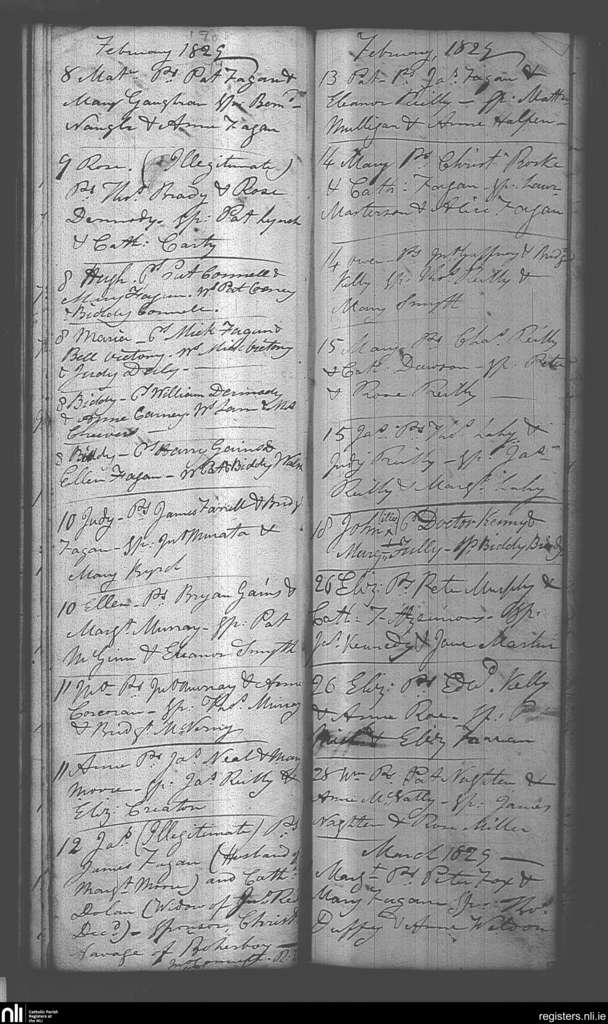 February 1829
8 Matw Ps Pat Fagan &
Mary Gaughran Sprs Bernd
Nangle & Anne Fagan
9 Rose. (Illegitimate)
Ps Thos Brady & Rose
Dermody - Sp: Pat Lynch
& Cath: Carty
8 Hugh. Ps Pat Connell &
Mary Fagan. Ws Pat Carney
& Biddy Connell.
8 Maria - Ps Mick Fagan &
Bell Victory - Ws Mick Victory
& Judy Daly -
8 Biddy - Ps William Dermody
& Anne Carney Ws
8 Biddy - Ps Harry Gains &
Ellen Fagan - Ws Pat Biddy
10 Judy - Ps James Farrell & Bridgt
Fagan - Sp: Jno Murtha &
Mary Byrd
10 Ellen - Ps Bryan Gains &
Margt Murray - Sp: Pat
McGinn & Eleanor Smyth
11 Jno Ps Jno Murray & Anne
Corcoran - Sp: Thos Murray
& Bridgt McNerny
11 Anne Ps Jas Neal & Mary
Moore - Sp: Jas Reilly &
Eliz: Creaton
12 Jas (Illegitimate) Ps
James Fagan (Husband of
Margt Moore) and Cath:
Dolan (Widow of Jno
Decd) - Sponsor, Christr
Savage of Rokerboy -
February 1829
13 Pat - Ps Jas Fagan &
Eleanor Reilly - Sp: Mattw
Mulligan & Anne Halpen -
14 Mary Ps Christr Rorke
& Cath: Fagan - Sp: Lawr
Masterson & Alice Fagan
14 Owen Ps Jno Gaffney & Bridgt
Kelly Sp: Thos Reilly &
Mary Smyth
15 Mary Ps Chas Reilly
& Cath Dawson - Sp: Peter
& Rose Reilly -
15 Jas Ps Thos Lahy &
Judy Reilly - Sp: Jas
Reilly & Margt Lahy
18 John Ps Doctor Kenny &
Mary Tully - Sp Biddy
26 Eliz: Ps Peter Murphy &
Cath: Fitzsimons - Sp:
Jas Kennedy & Jane Martin
26 Eliz: Ps Edwd Kelly
& Anne Roe - Sp:
& Eliz Farran
28 Wm Ps Pat Naghten &
Anne McNally - Sp: James
Naghten & Rose Miller
March 1829 -
Margt Ps Peter Fox &
Mary Fagan Sprs Thos
Duffy & Anne Wilson
nli
Catholic Parish
Registers at
the NLI
registers.nli.ie